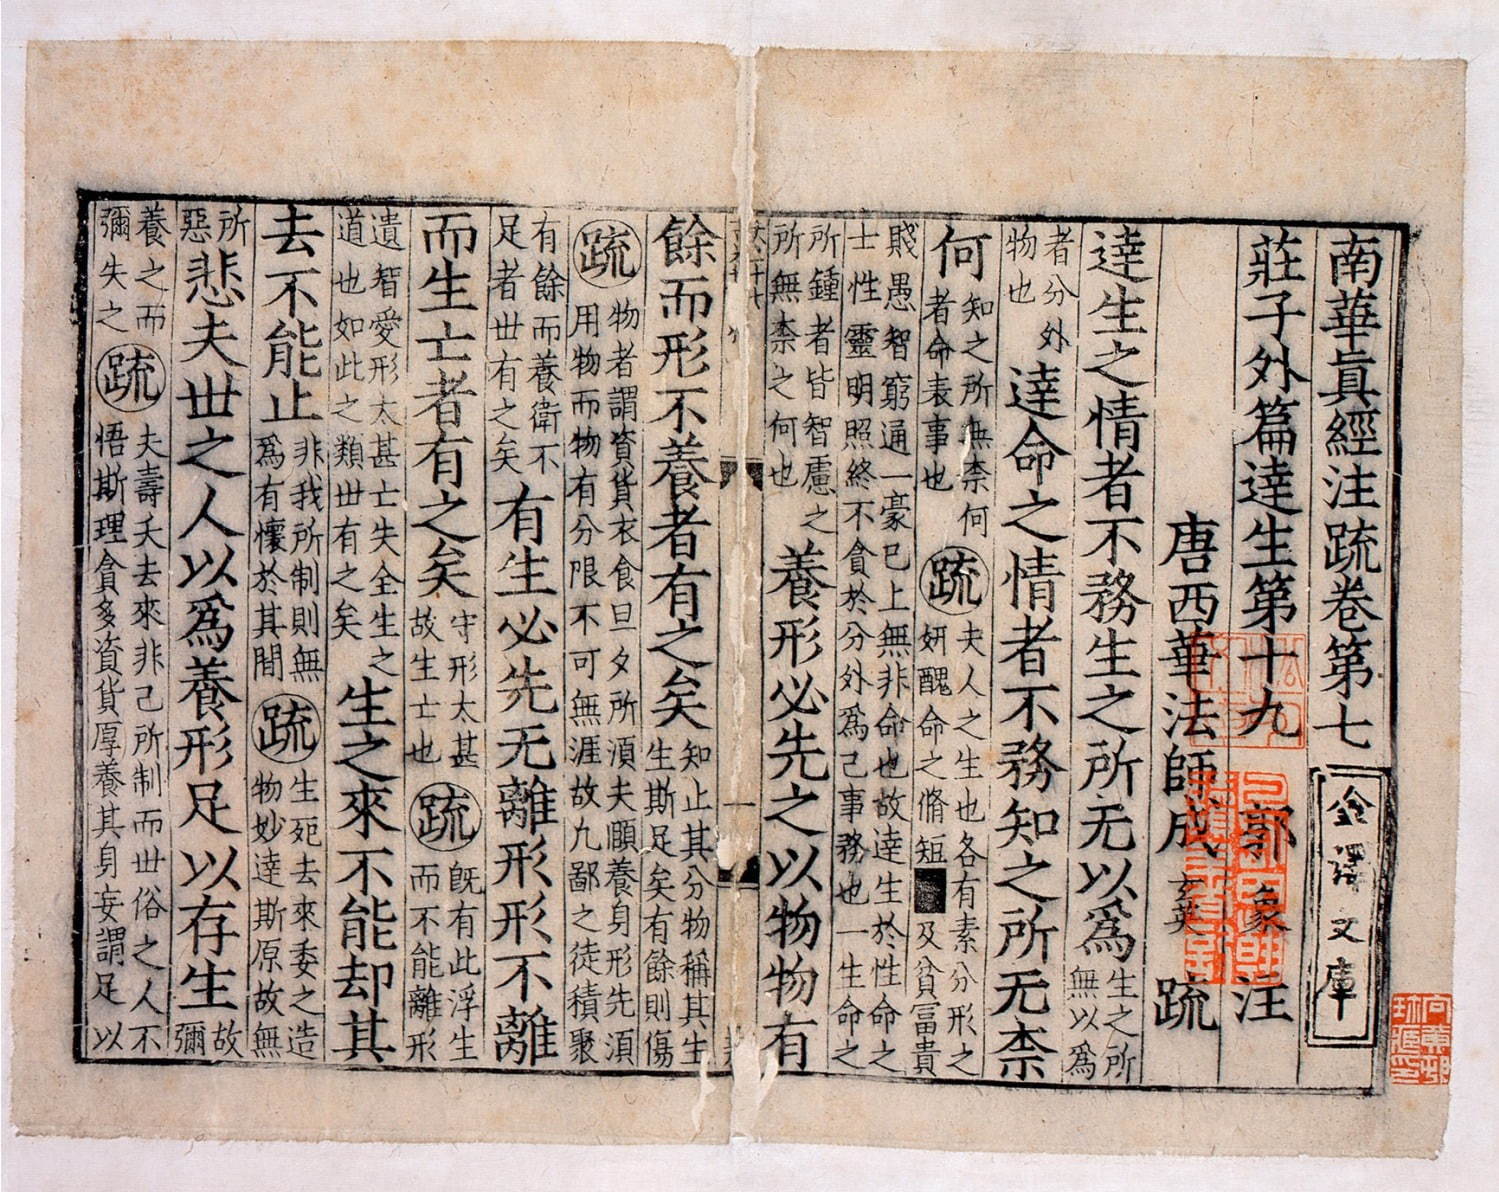 南華眞經注疏卷第七
金澤文庫
莊子外篇達生第十九 郭象注
唐西華法師成玄英 疏
達生之情者不務生之所无以爲生之所無以爲
者分外物也達命之情者不務知之所无柰
何知之所無柰何者命表事也疏夫人之生也各有素分形之妍醜命之脩短及貧富貴
賤愚智窮通一豪已上無非命也故達生於性命之士性靈明照終不貪於分外爲己事務也一生命之
所鍾者皆智慮之所無柰之何也養形必先之以物物有
餘而形不養者有之矣知止其分物稱其生生斯足矣有餘則傷
疏物者謂資貨衣食旦夕所湏夫頤養身形先湏用物而物有分限不可無涯故九鄙之徒積聚
有餘而養衛不足者世有之矣有生必先无離形形不離
而生亡者有之矣守形太甚故生亡也疏旣有此浮生而不能離形
遺智愛形太甚亡失全生之道也如此之類世有之矣生之來不能却其
去不能止非我所制則無爲有懷於其間疏生死去來委之造物妙達斯原故無
所惡悲夫世之人以爲養形足以存生故彌
養之而彌失之疏夫壽夭去來非己所制而世俗之人不悟斯理貪多資貨厚養其身妄謂足以
向黃邨珎藏印